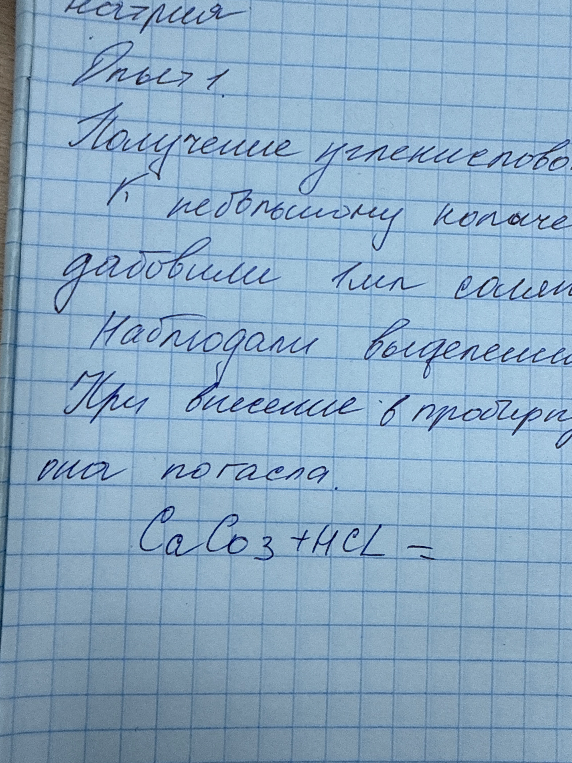 натрия
Опыт 1.
Получение углекислого
К небольшому количе
дабовили 1мл солян
Наблюдали выделени
При внесение в пробирку
она погасла.
CaCo3 + HCL =